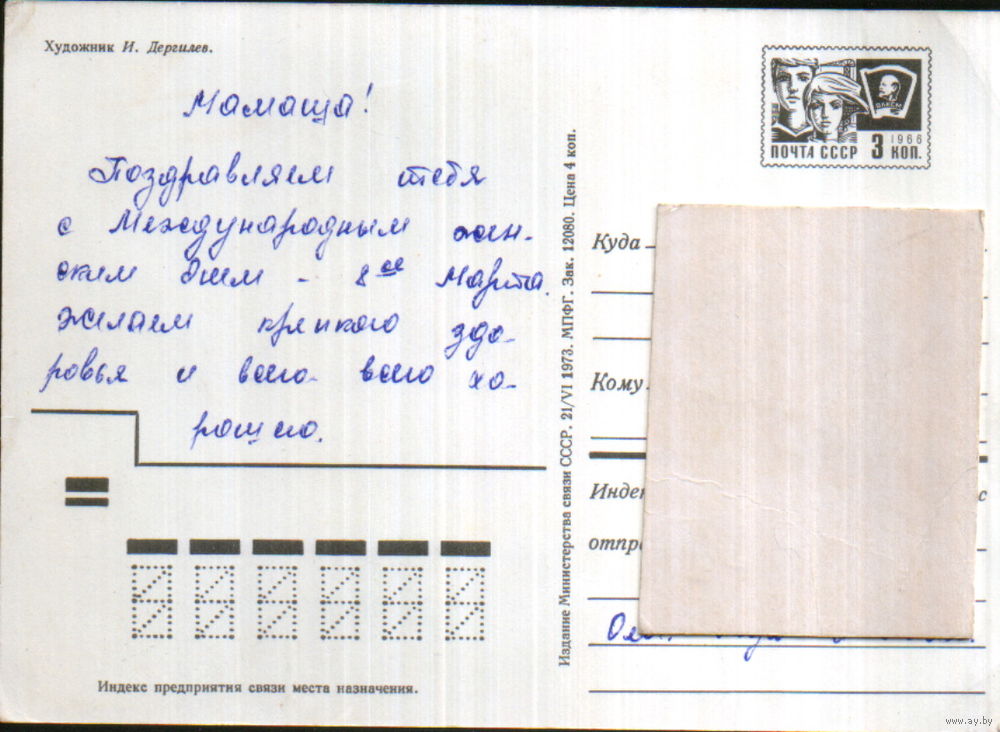 Художник И. Дергилев.
Мамаша!
Поздравляем тебя
с Международным жен-
ским днем - 8ое Марта.
Желаем крепкого здо-
ровья и всего-всего хо-
рошего.
Индекс предприятия связи места назначения.
Издание Министерства связи СССР. 21/VI 1973. МПФГ. Зак. 12080. Цена 4 коп.
ВЛКСМ
1966
ПОЧТА СССР 3 КОП.
Куда
Кому
www.ay.by